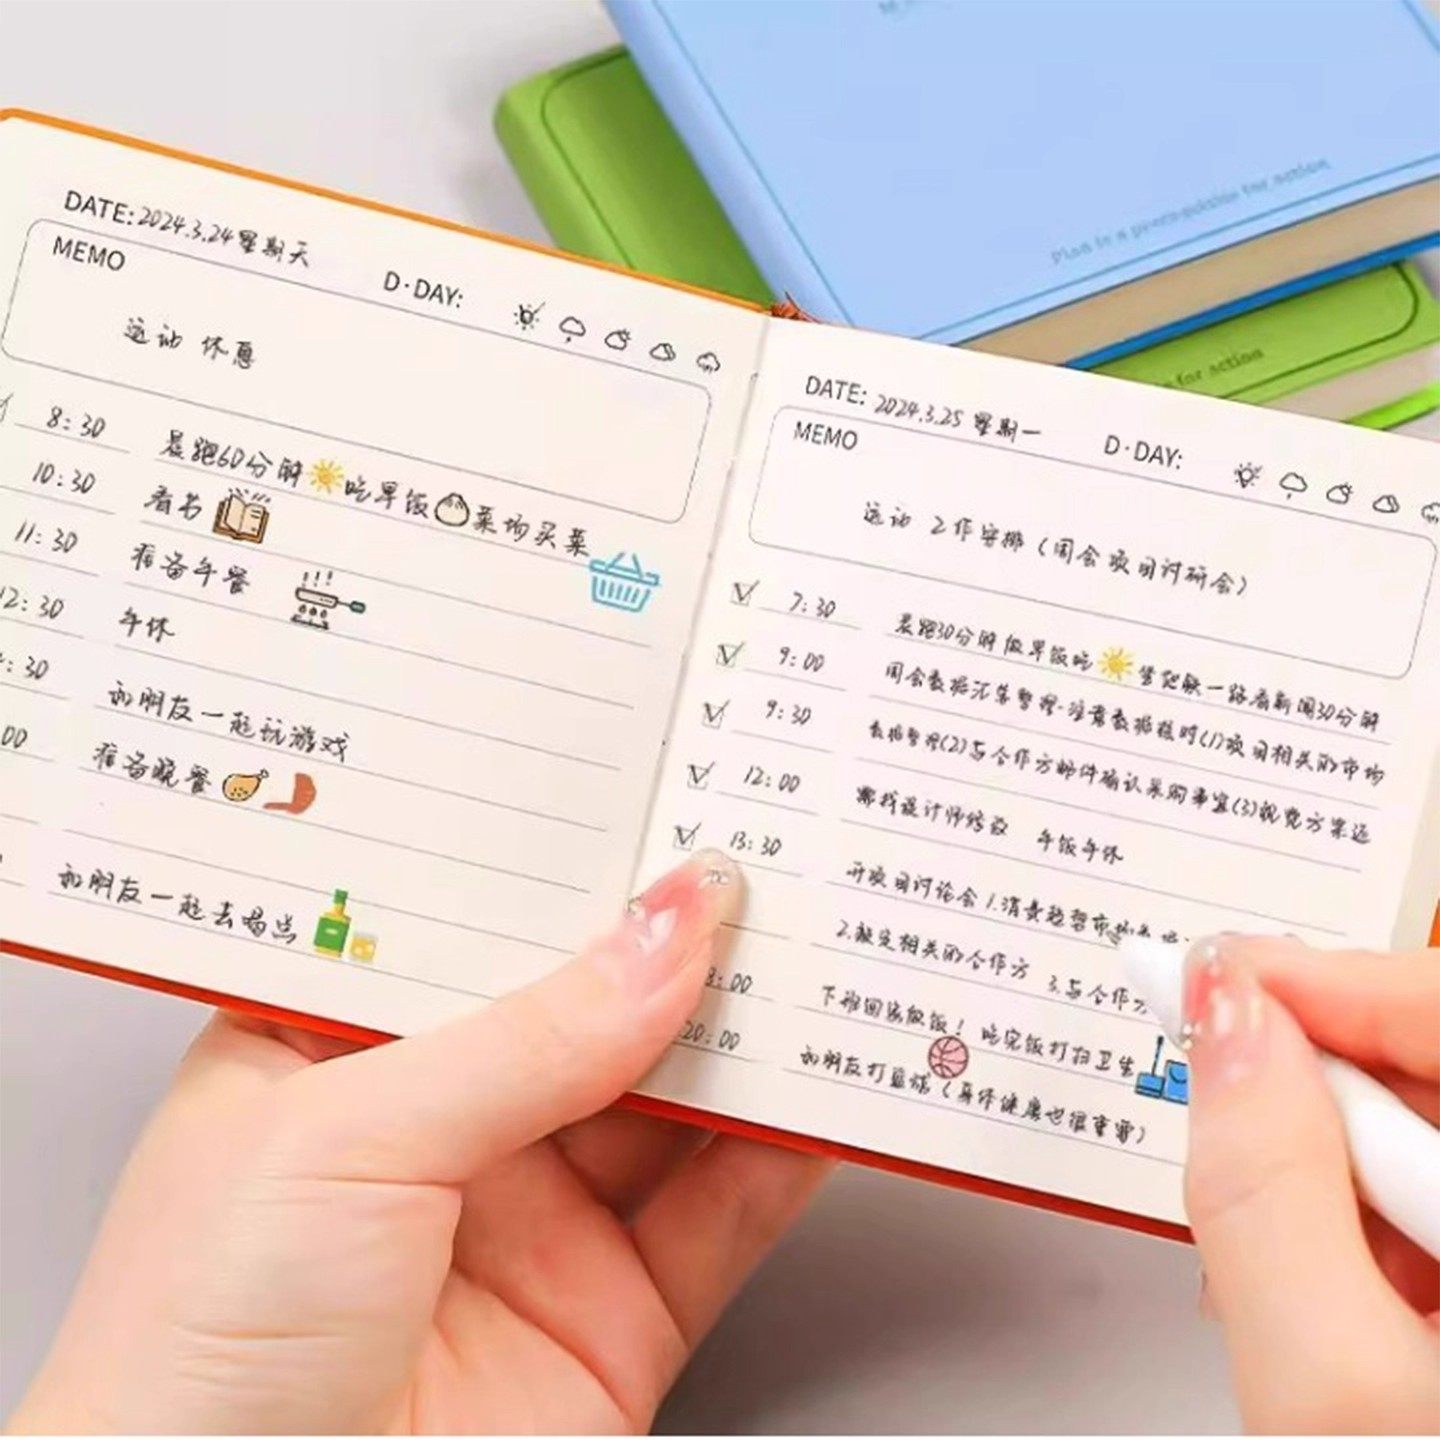 Plan is a
for action
for action
DATE: 2024.3.24 星期天
D·DAY:
MEMO
运动 休息
8:30 晨跑60分钟 吃早饭 菜场买菜
10:30 看书
11:30 准备午餐
12:30 午休
:30 和朋友一起玩游戏
00 准备晚餐
和朋友一起去喝点
DATE: 2024.3.25 星期一
D·DAY:
MEMO
运动 工作安排(周会项目讨研会)
7:30 晨跑30分钟 做早饭吃 坐地铁一路看新闻30分钟
9:00 周会数据汇告整理·注意数据核对(1)项目相关的市场
9:30 数据整理(2)与合作方邮件确认采购事宜(3)视觉方案返
12:00 设计师修改 午饭午休
13:30 开项目讨论会 1.消费趋势市场
2.敲定相关的合作方 3.与合作方
8:00 下班回家做饭! 吃完饭打扫卫生
20:00 和朋友打篮球(身体健康也很重要)